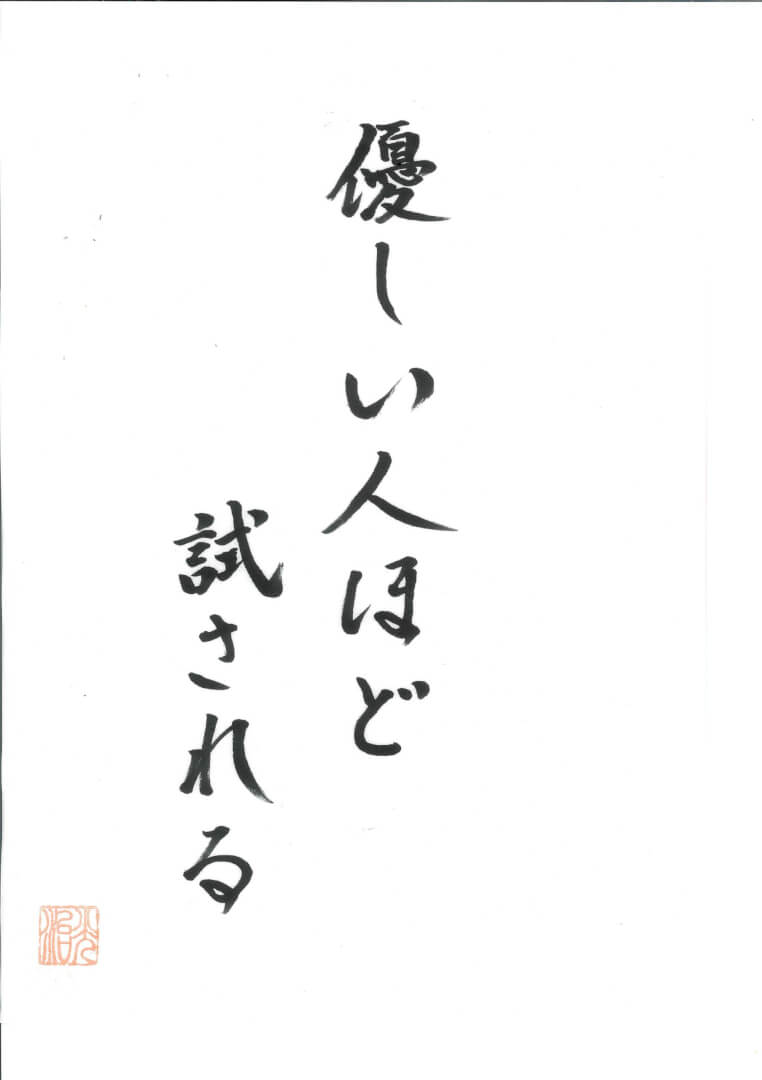 優しい人ほど
試される